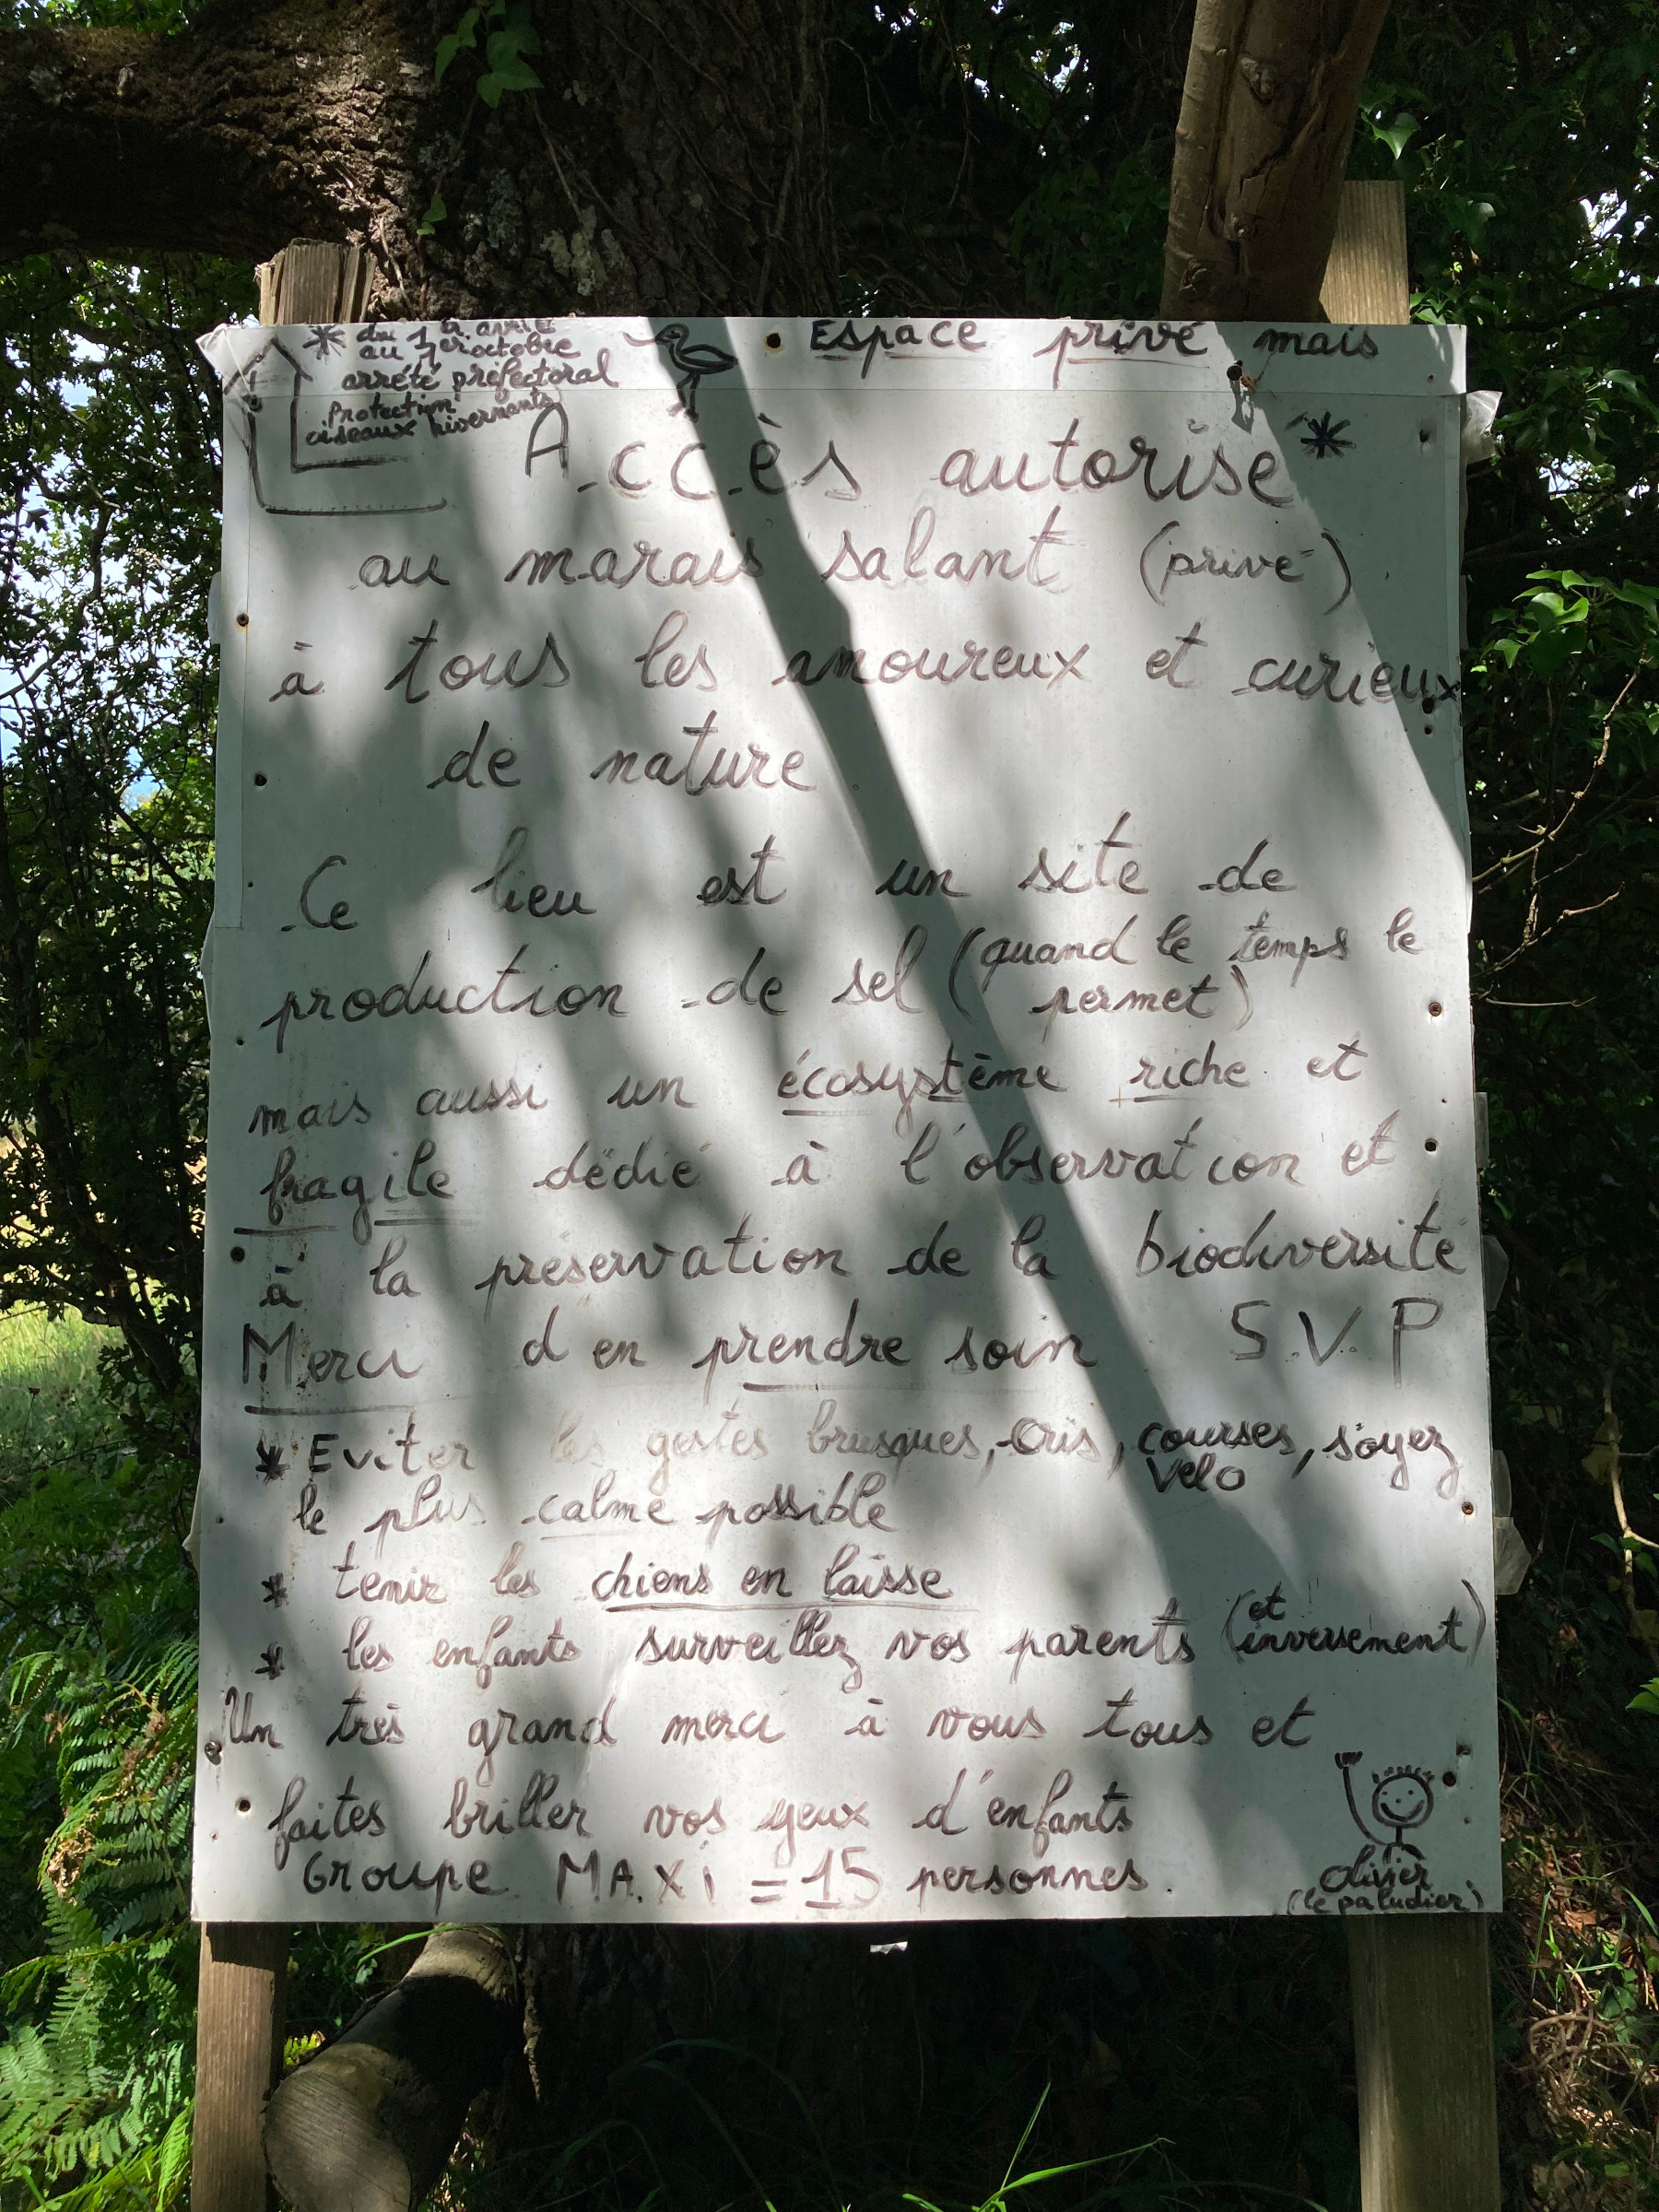 * du 1er avril
au 1er octobre
arrêté préfectoral
Protection
oiseaux hivernants
Espace privé mais
Accès autorisé *
au marais salant (privé)
à tous les amoureux et curieux
de nature
Ce lieu est un site de
production de sel (quand le temps le
permet)
mais aussi un écosystème riche et
fragile dédié à l'observation et
à la préservation de la biodiversité
Merci d'en prendre soin S.V.P
* Eviter les gestes brusques, cris, courses, soyez
velo
le plus calme possible
* tenir les chiens en laisse
* les enfants surveillez vos parents (et
inversement)
Un très grand merci à vous tous et
faites briller vos yeux d'enfants
Groupe MAXi = 15 personnes.
Olivier
(le paludier)